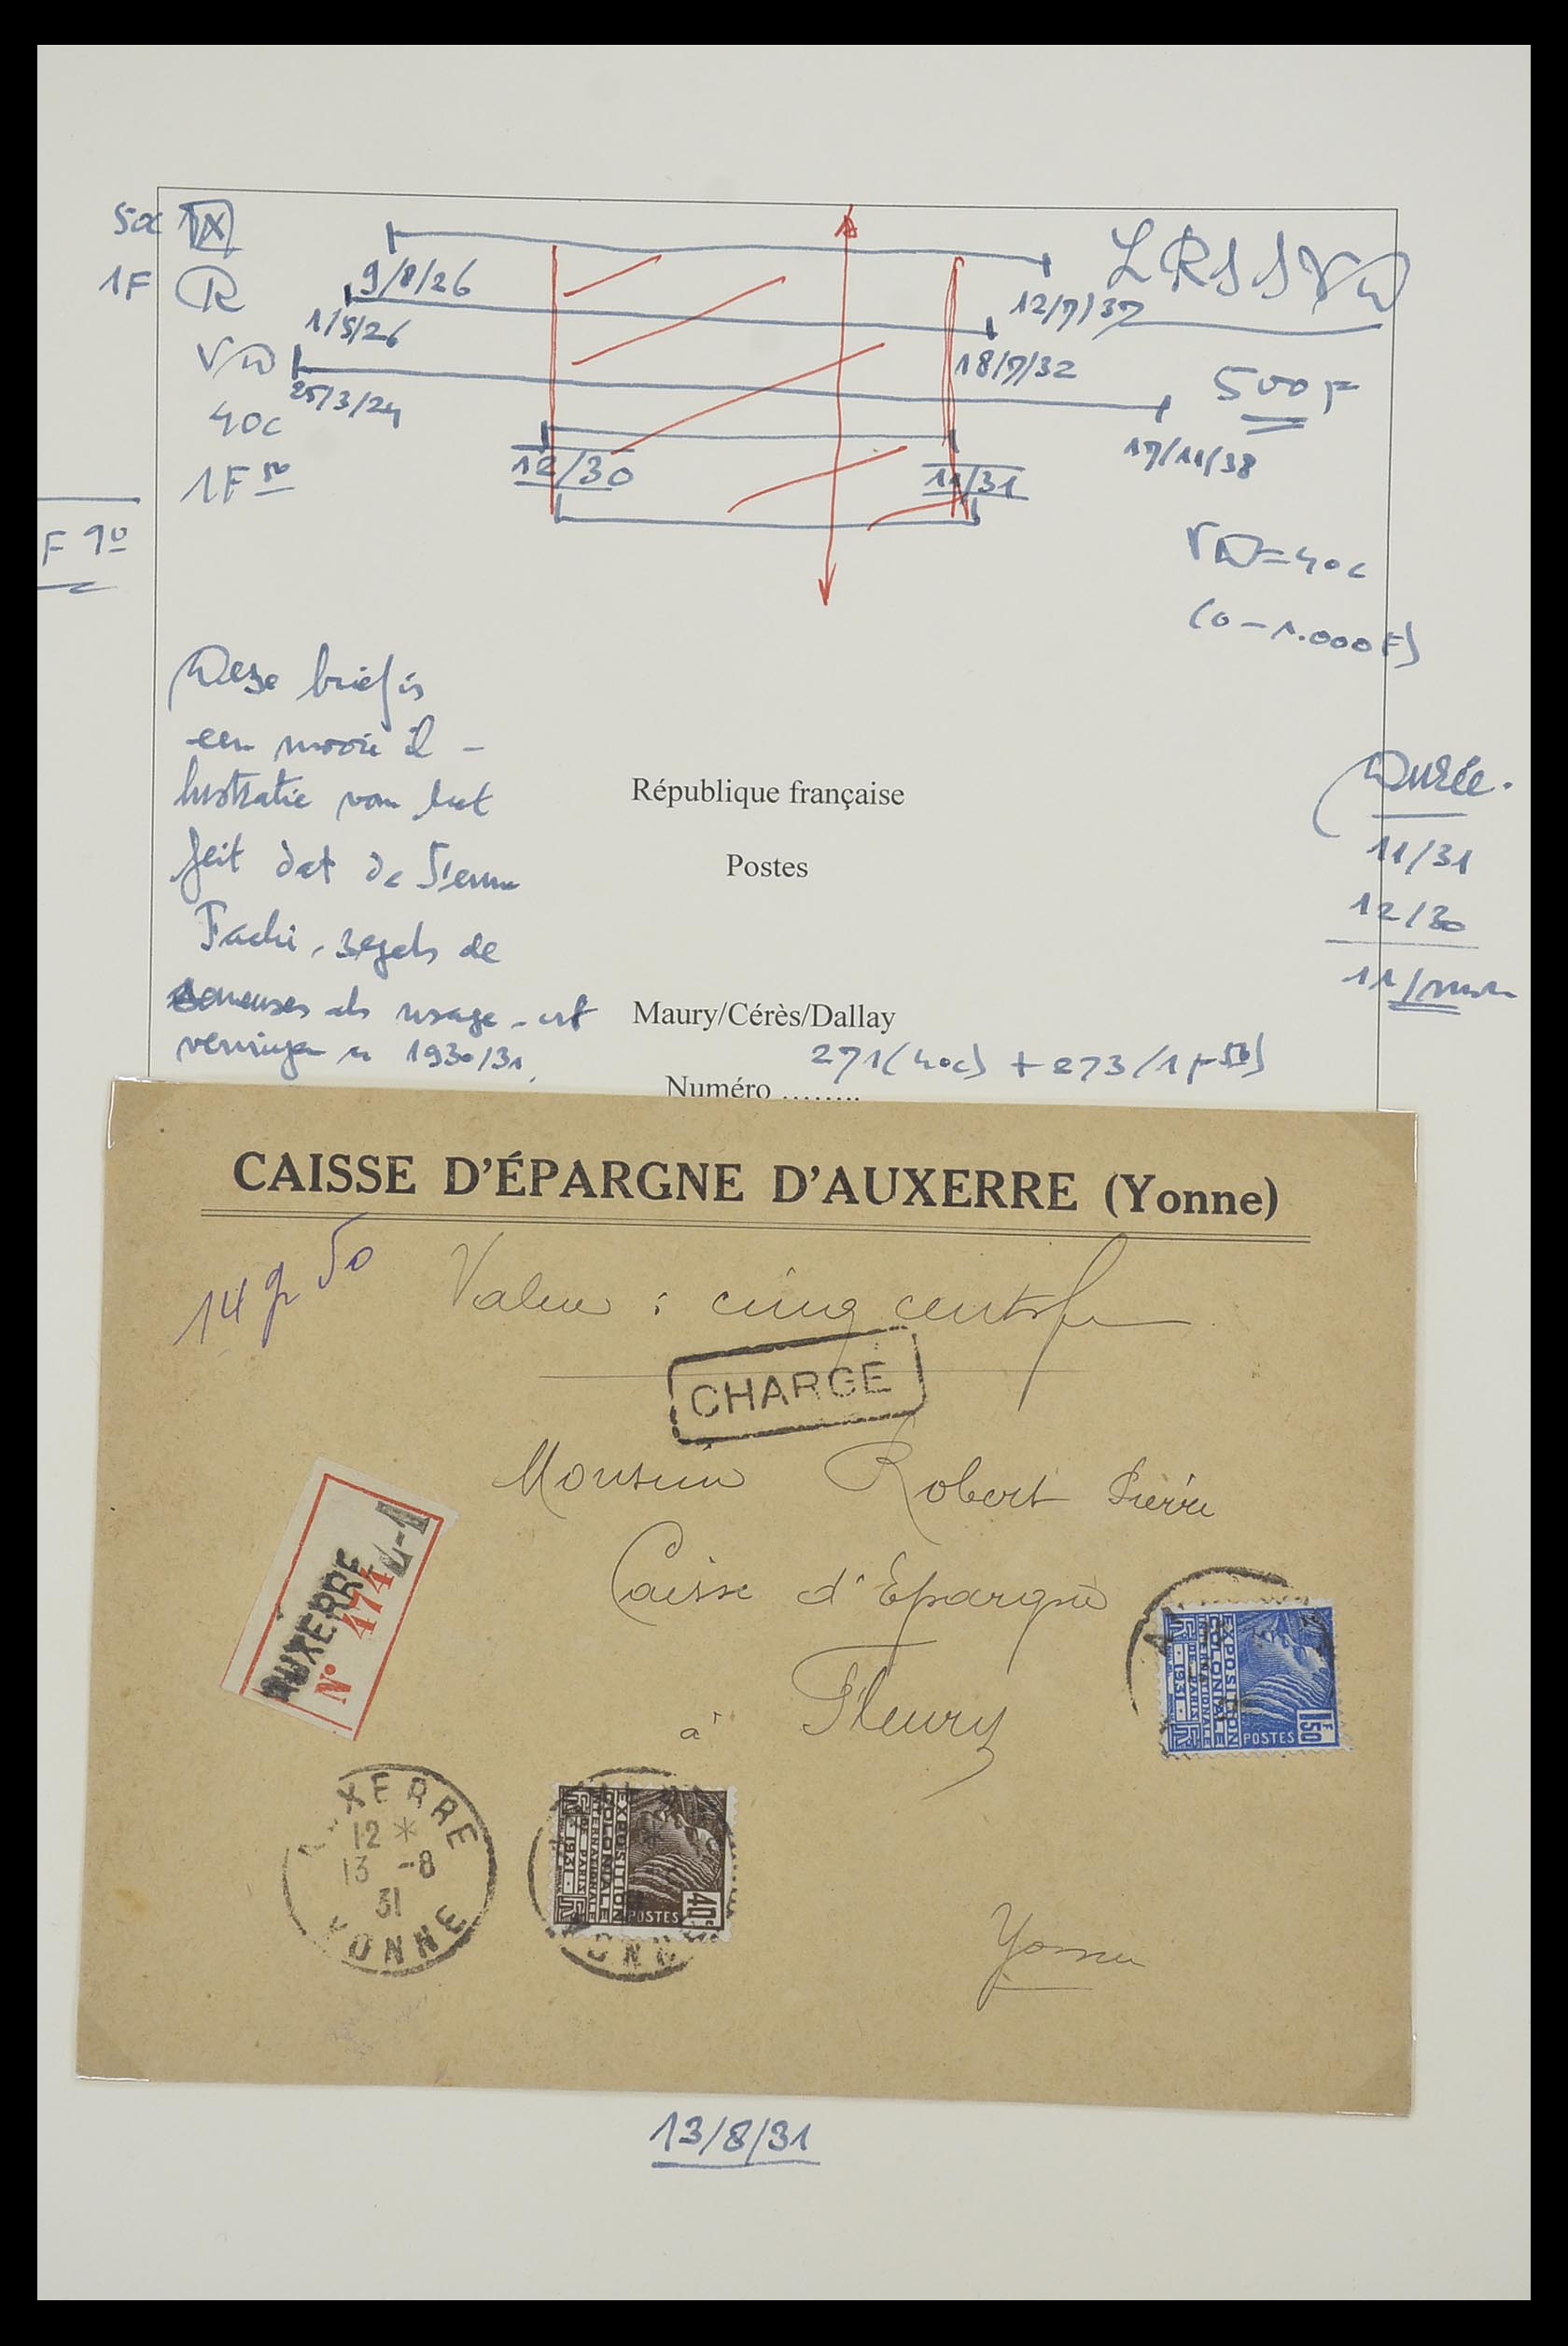 50c
1F R
9/8/26
12/7/37
1/5/26
18/7/32
VD
25/3/24
500F
17/11/38
40c
12/30
11/31
1F50
F 90
VD=40c
(0-1.000F)
Deze brief is
een mooie il-
lustratie van het
feit dat de
Fachi-zegels de
als usage
1930/31.
République française
Postes
Durée.
11/31
12/30
11/
Maury/Cérès/Dallay
271(40c) + 273(1F50)
Numéro ........
CAISSE D'ÉPARGNE D'AUXERRE (Yonne)
14 gr 50
Valeur : cinq cents fr
CHARGÉ
Monsieur Robert Pierre
Caisse d'Epargne
à Fleury
Yonne
AUXERRE
N° 474
AUXERRE
12 *
13 -8
31
YONNE
EXPOSITION
COLONIALE
INTERNATIONALE
DE PARIS
1931
POSTES
40c
EXPOSITION
COLONIALE
INTERNATIONALE
DE PARIS
1931
POSTES
1F50
13/8/31